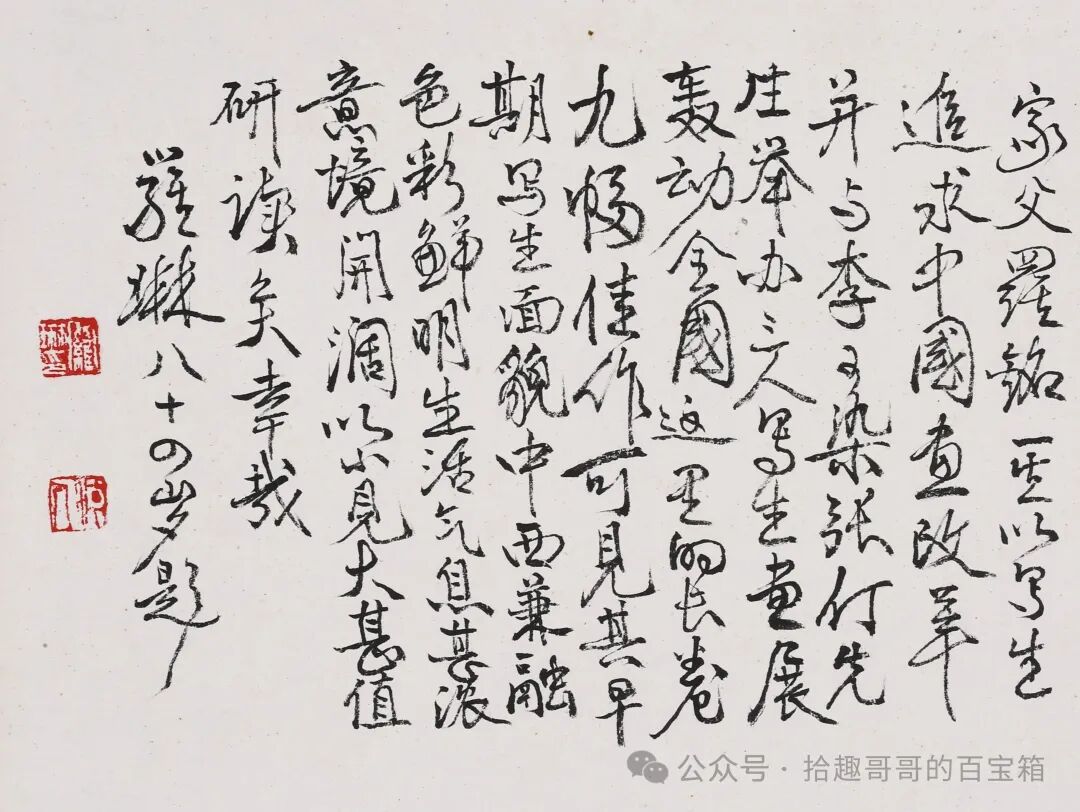 家父羅銘一直以写生
追求中國画改革
并与李可染張仃先
生举办三人写生画展
轰动全國这里的长卷
九幅佳作可見其早
期写生面貌中西兼融
色彩鲜明生活气息甚浓
意境開濶以小見大甚值
研读矣幸哉
羅琳八十四岁题
公众号·拾趣哥哥的百宝箱